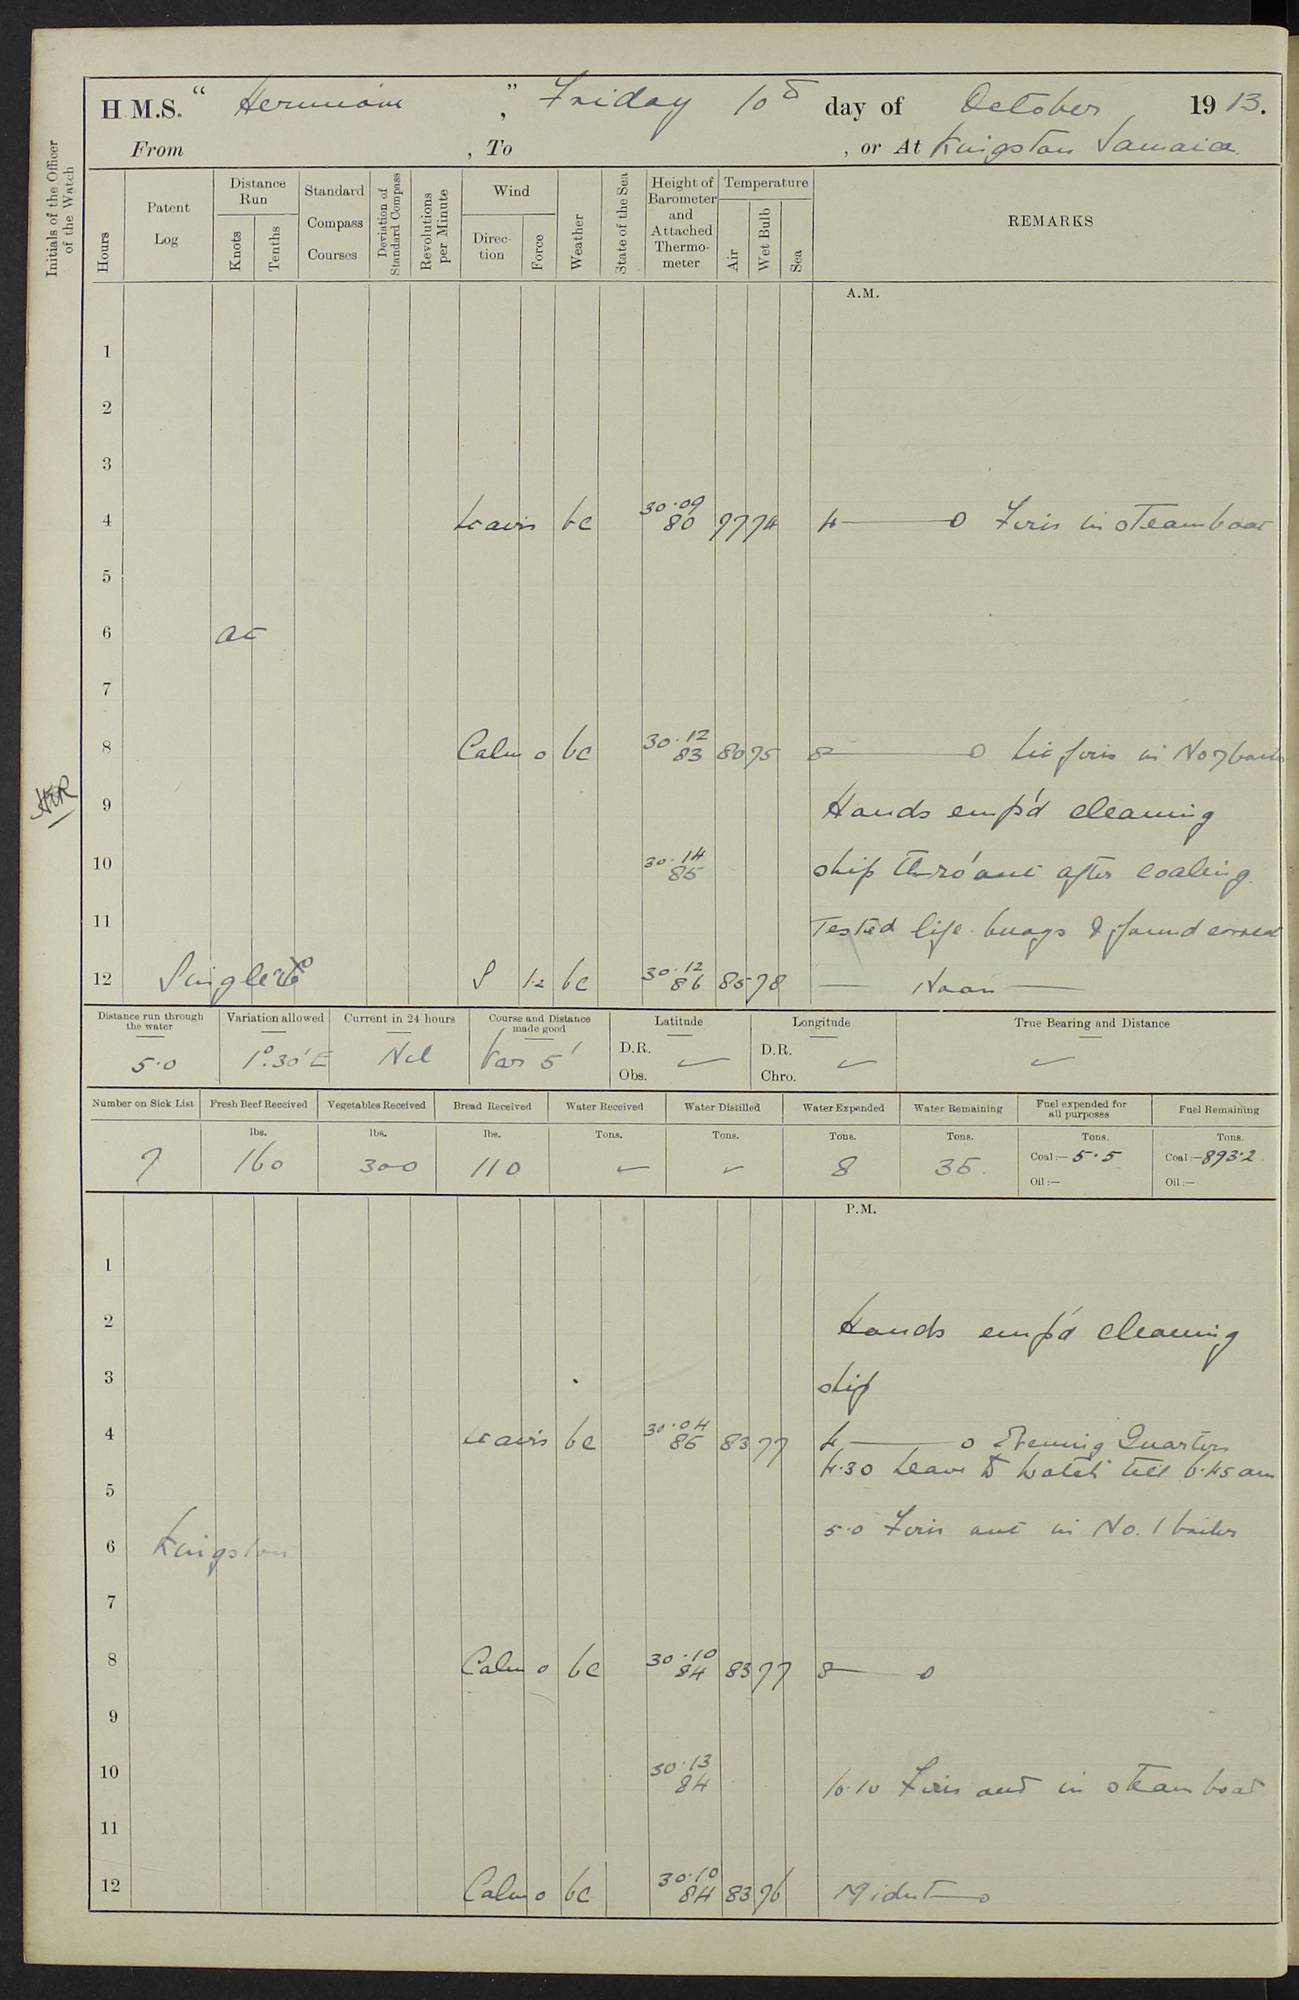 H.M.S. "Hermione", Friday 10th day of October 1913.
From , To , or At Kingston Jamaica
Initials of the Officer of the Watch
Hours
Patent Log
Distance Run
Knots
Tenths
Standard Compass Courses
Deviation of Standard Compass
Revolutions per Minute
Wind
Direction
Force
Weather
State of the Sea
Height of Barometer and Attached Thermometer
Temperature
Air
Wet Bulb
Sea
REMARKS
A.M.
1
2
3
4 bc 30.09 80 77 74 4 0 Fires in steamboat
5
6 at
7
8 Calm 0 bc 30.12 83 80 75 8 0 Lit fires in No 7 boiler
9 Hands emp'd cleaning
10 30.14 85 ship thro'out after coaling.
11 Tested life buoys & found correct
12 S 1.2 bc 30.12 86 85 78 — Noon —
Distance run through the water 5.0
Variation allowed 1°.30' E
Current in 24 hours Nil
Course and Distance made good Var 5'
Latitude D.R. Obs. ✓
Longitude D.R. Chro. ✓
True Bearing and Distance ✓
Number on Sick List 7
Fresh Beef Received lbs. 160
Vegetables Received lbs. 300
Bread Received lbs. 110
Water Received Tons. ✓
Water Distilled Tons. ✓
Water Expended Tons. 8
Water Remaining Tons. 35.
Fuel expended for all purposes Tons. Coal:— 5.5 Oil:—
Fuel Remaining Tons. Coal:— 893.2 Oil:—
P.M.
1
2 Hands emp'd cleaning
3 ship
4 bc 30.04 85 83 77 4 0 Evening Quarters
4.30 Leave to watch till 6.45 am
5
5.0 Fires out in No. 1 boiler
6 Kingston
7
8 Calm 0 bc 30.10 84 83 77 8 0
9
10 30.13 84 10.10 Fires out in steam boat
11
12 Calm 0 bc 30.10 84 83 76 Midnt 0